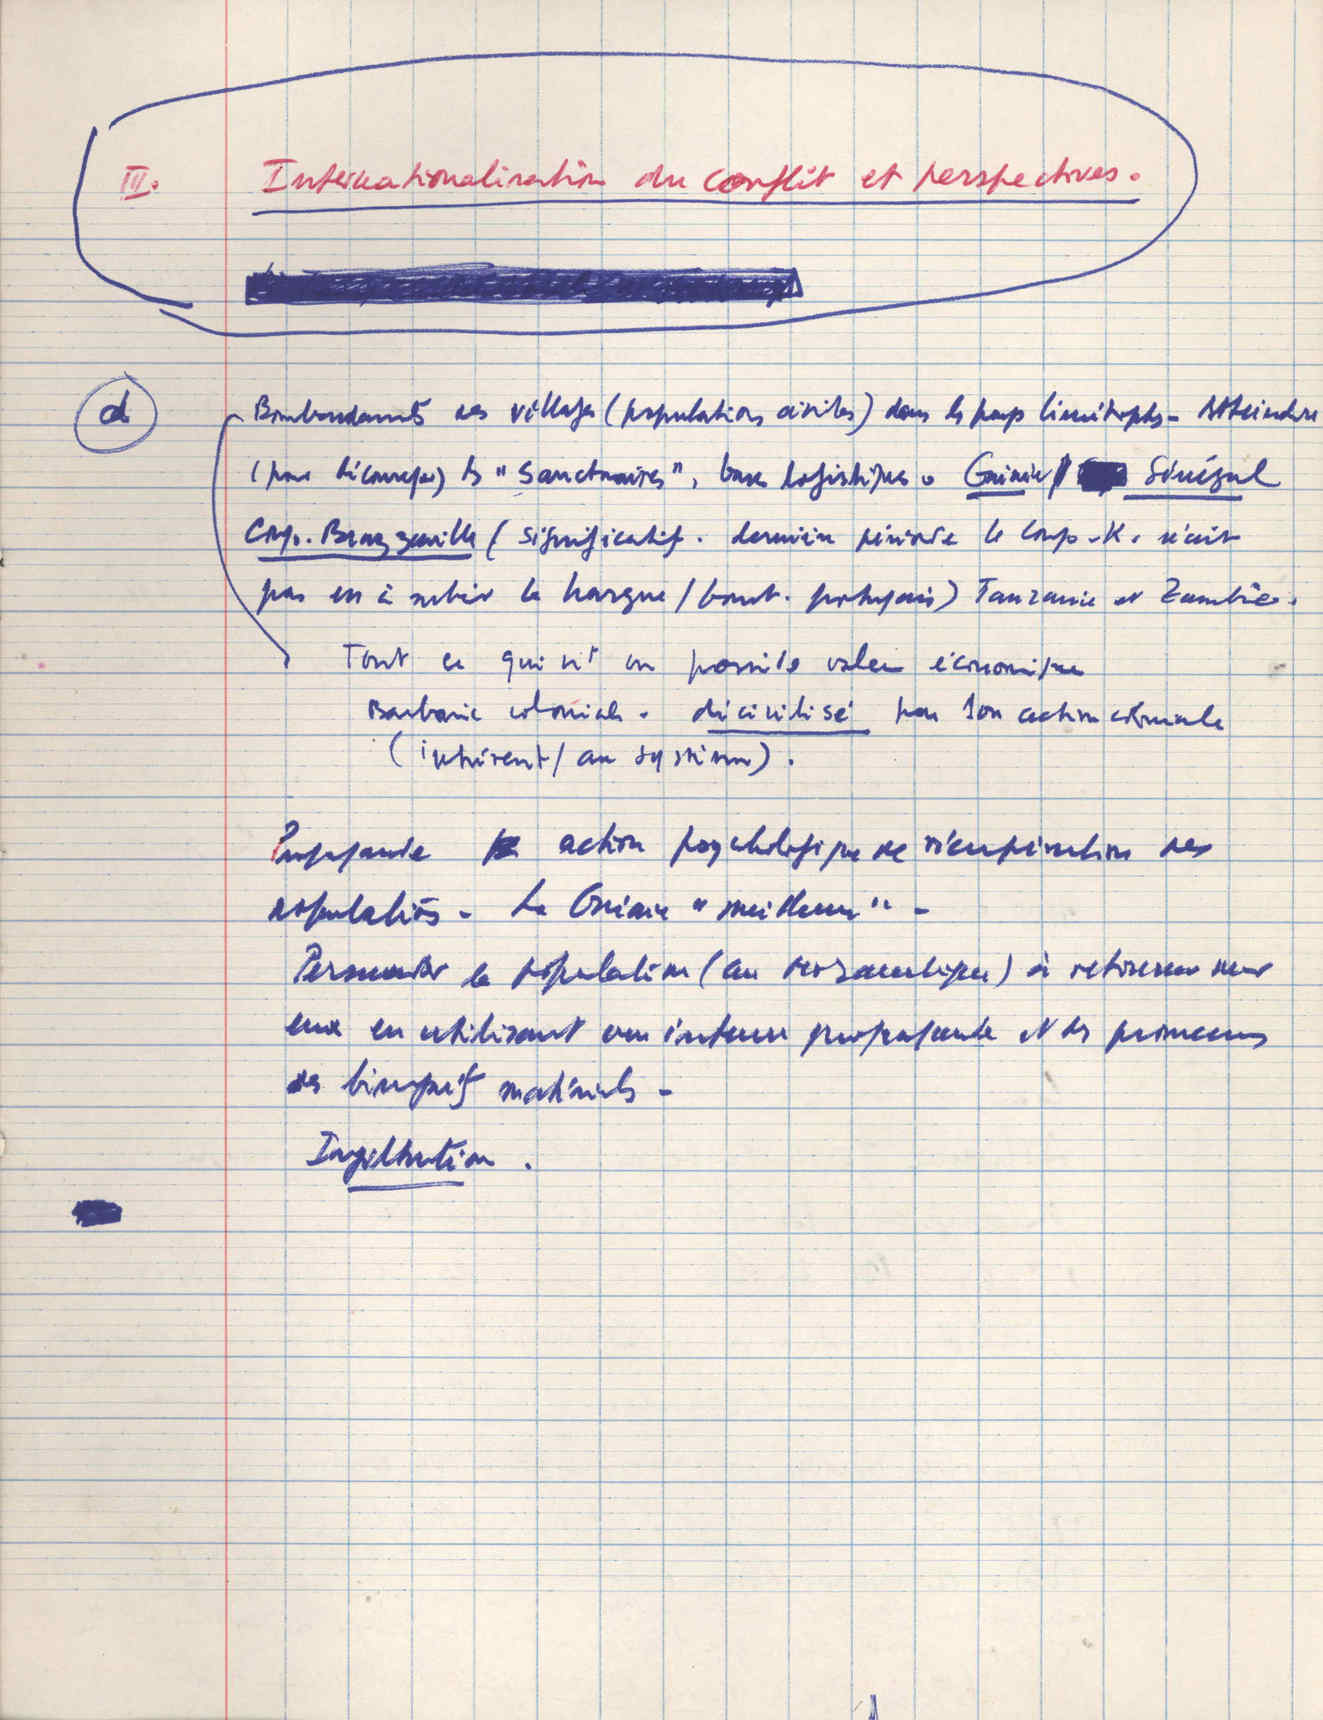 III. Internationalisation du conflit et perspectives.
d
Bombardements des villages (populations civiles) dans les pays limitrophes - Atteindre
(pour décourager) les "sanctuaires", bases logistiques. Guinée / Sénégal
Congo-Brazzaville (significatif. dernière période le Congo-K. n'ait
pas eu à subir la hargne / bomb. portugais) Tanzanie et Zambie.
Tout ce qui vit ou possède valeur économique
Barbarie coloniale. décivilisé par son action coloniale
(inhérent / au système).
Propagande action psychologique de récupération des
populations - La Guinée "meilleure" -
Persuader la population (au Mozambique) à retourner
eux en utilisant une intense propagande et des promesses
des bienfaits matériels -
Infiltration.